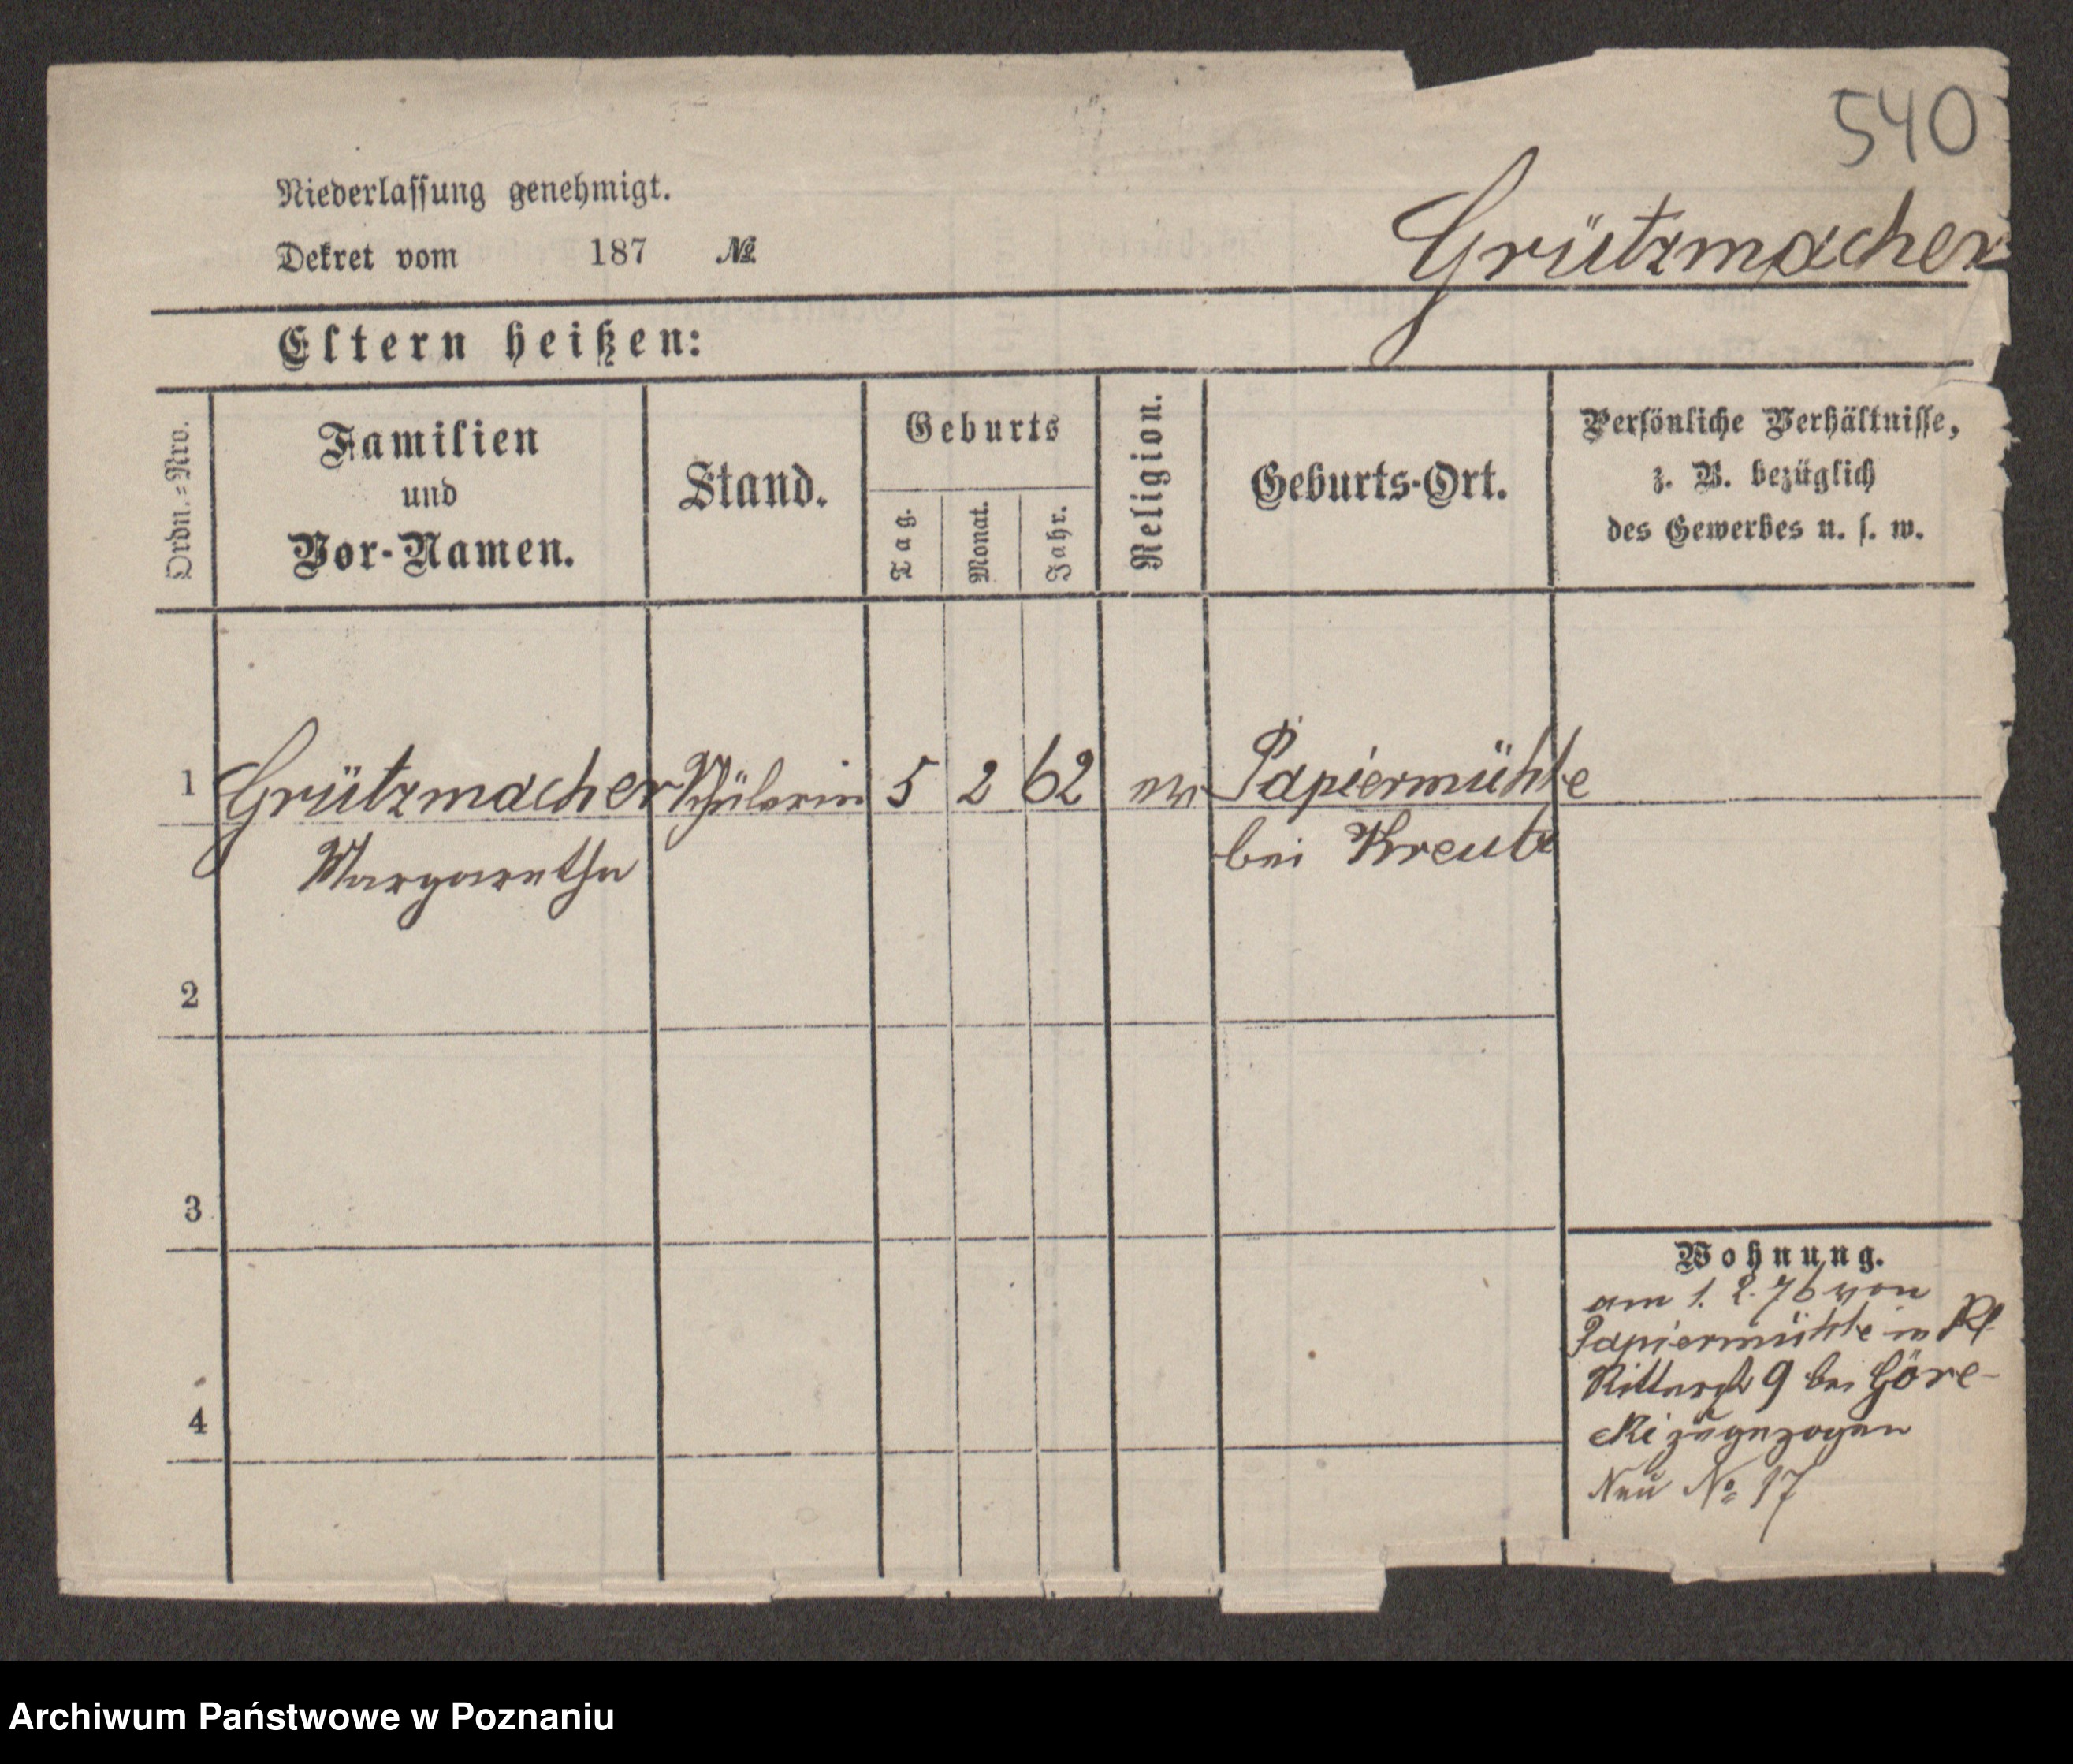 540
Niederlassung genehmigt.
Grützmacher
Dekret vom 187 №
Eltern heißen:
Ordn.=Nro.
Familien
und
Vor-Namen.
Stand.
Geburts
Tag.
Monat.
Jahr.
Religion.
Geburts-Ort.
Persönliche Verhältnisse,
z. B. bezüglich
des Gewerbes u. s. w.
1 Grützmacher Schülerin 5 2 62 ev Papiermühle
Margarethe bei Kreutz
2
3
4
Wohnung.
am 1. 2. 76 von
Papiermühle in Kl
Ritterstr 9 bei Göre-
cki zugezogen
Neu № 17
Archiwum Państwowe w Poznaniu